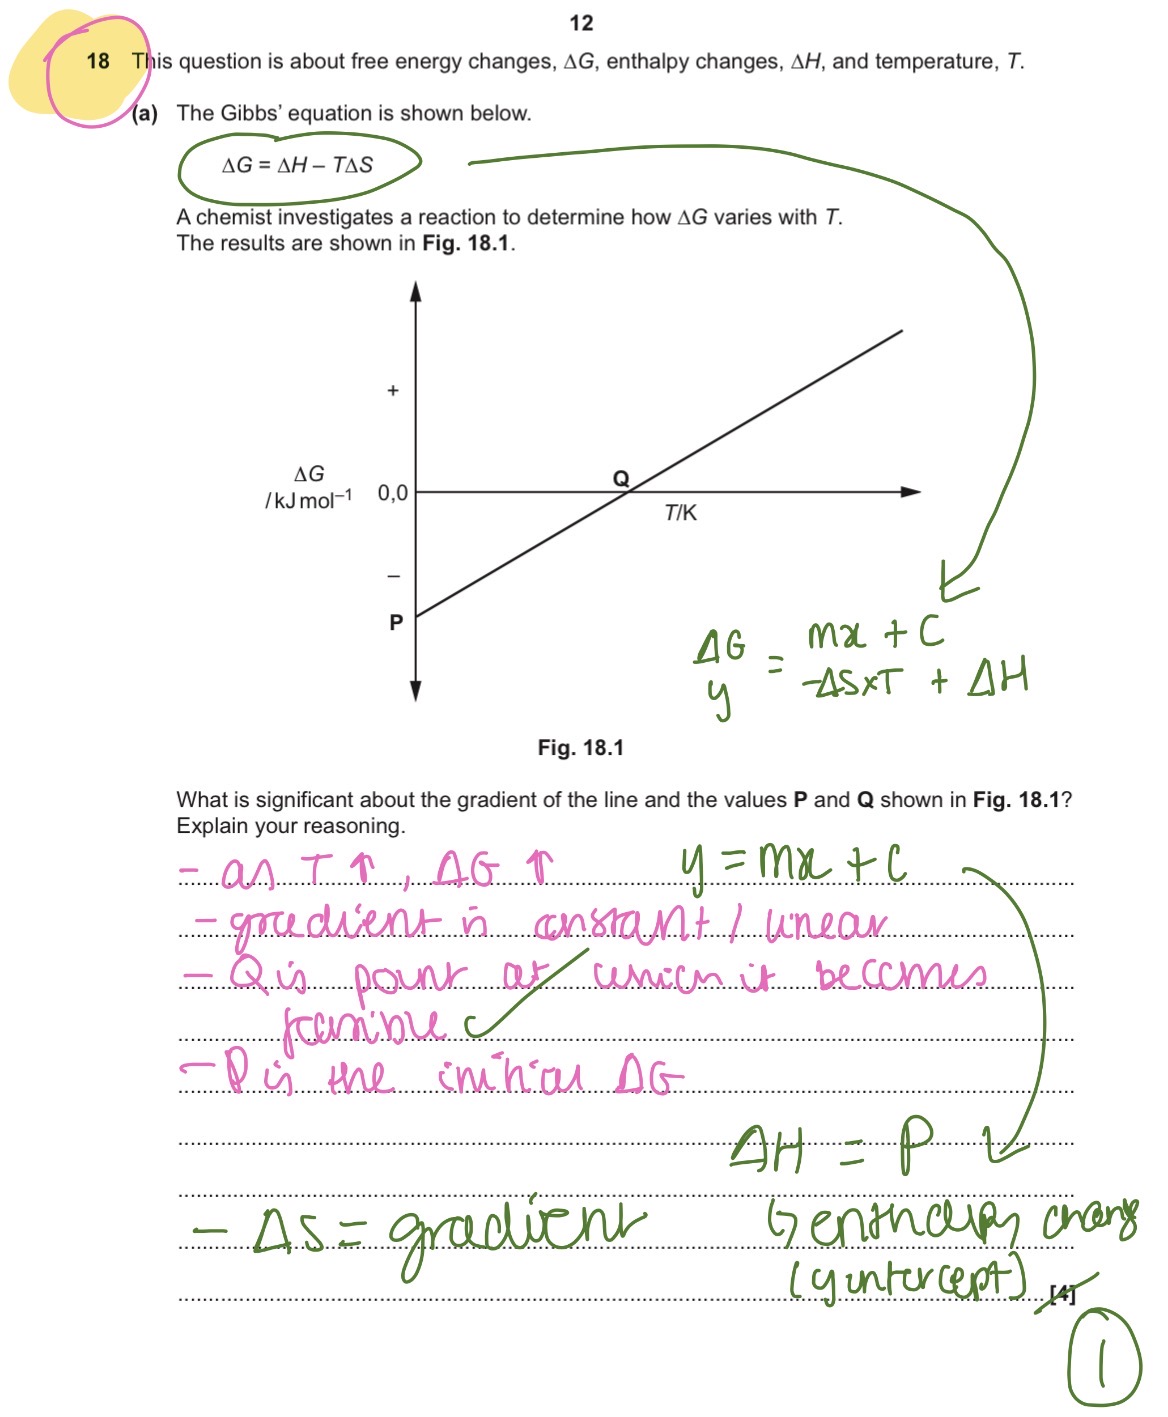 12
18 This question is about free energy changes, ΔG, enthalpy changes, ΔH, and temperature, T.
(a) The Gibbs' equation is shown below.
ΔG = ΔH – TΔS
A chemist investigates a reaction to determine how ΔG varies with T.
The results are shown in Fig. 18.1.
+
ΔG
/ kJ mol⁻¹
0,0
Q
T/K
–
P
ΔG = mx + C
y -ΔSxT + ΔH
Fig. 18.1
What is significant about the gradient of the line and the values P and Q shown in Fig. 18.1?
Explain your reasoning.
- as T ↑, ΔG ↑ y = mx + C
- gradient is constant / linear
- Q is point at which it becomes
feasible
- P is the initial ΔG
ΔH = P
- ΔS = gradient ↳ enthalpy change
(y intercept) [4]
1